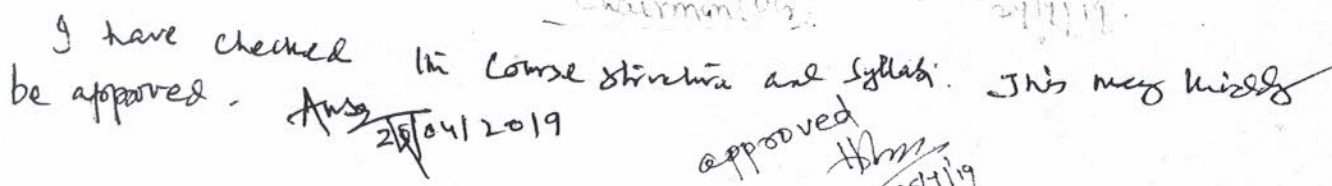 Chairman
I have checked the Course structure and Syllabi. This may kindly
be approved.
04/2019
approved